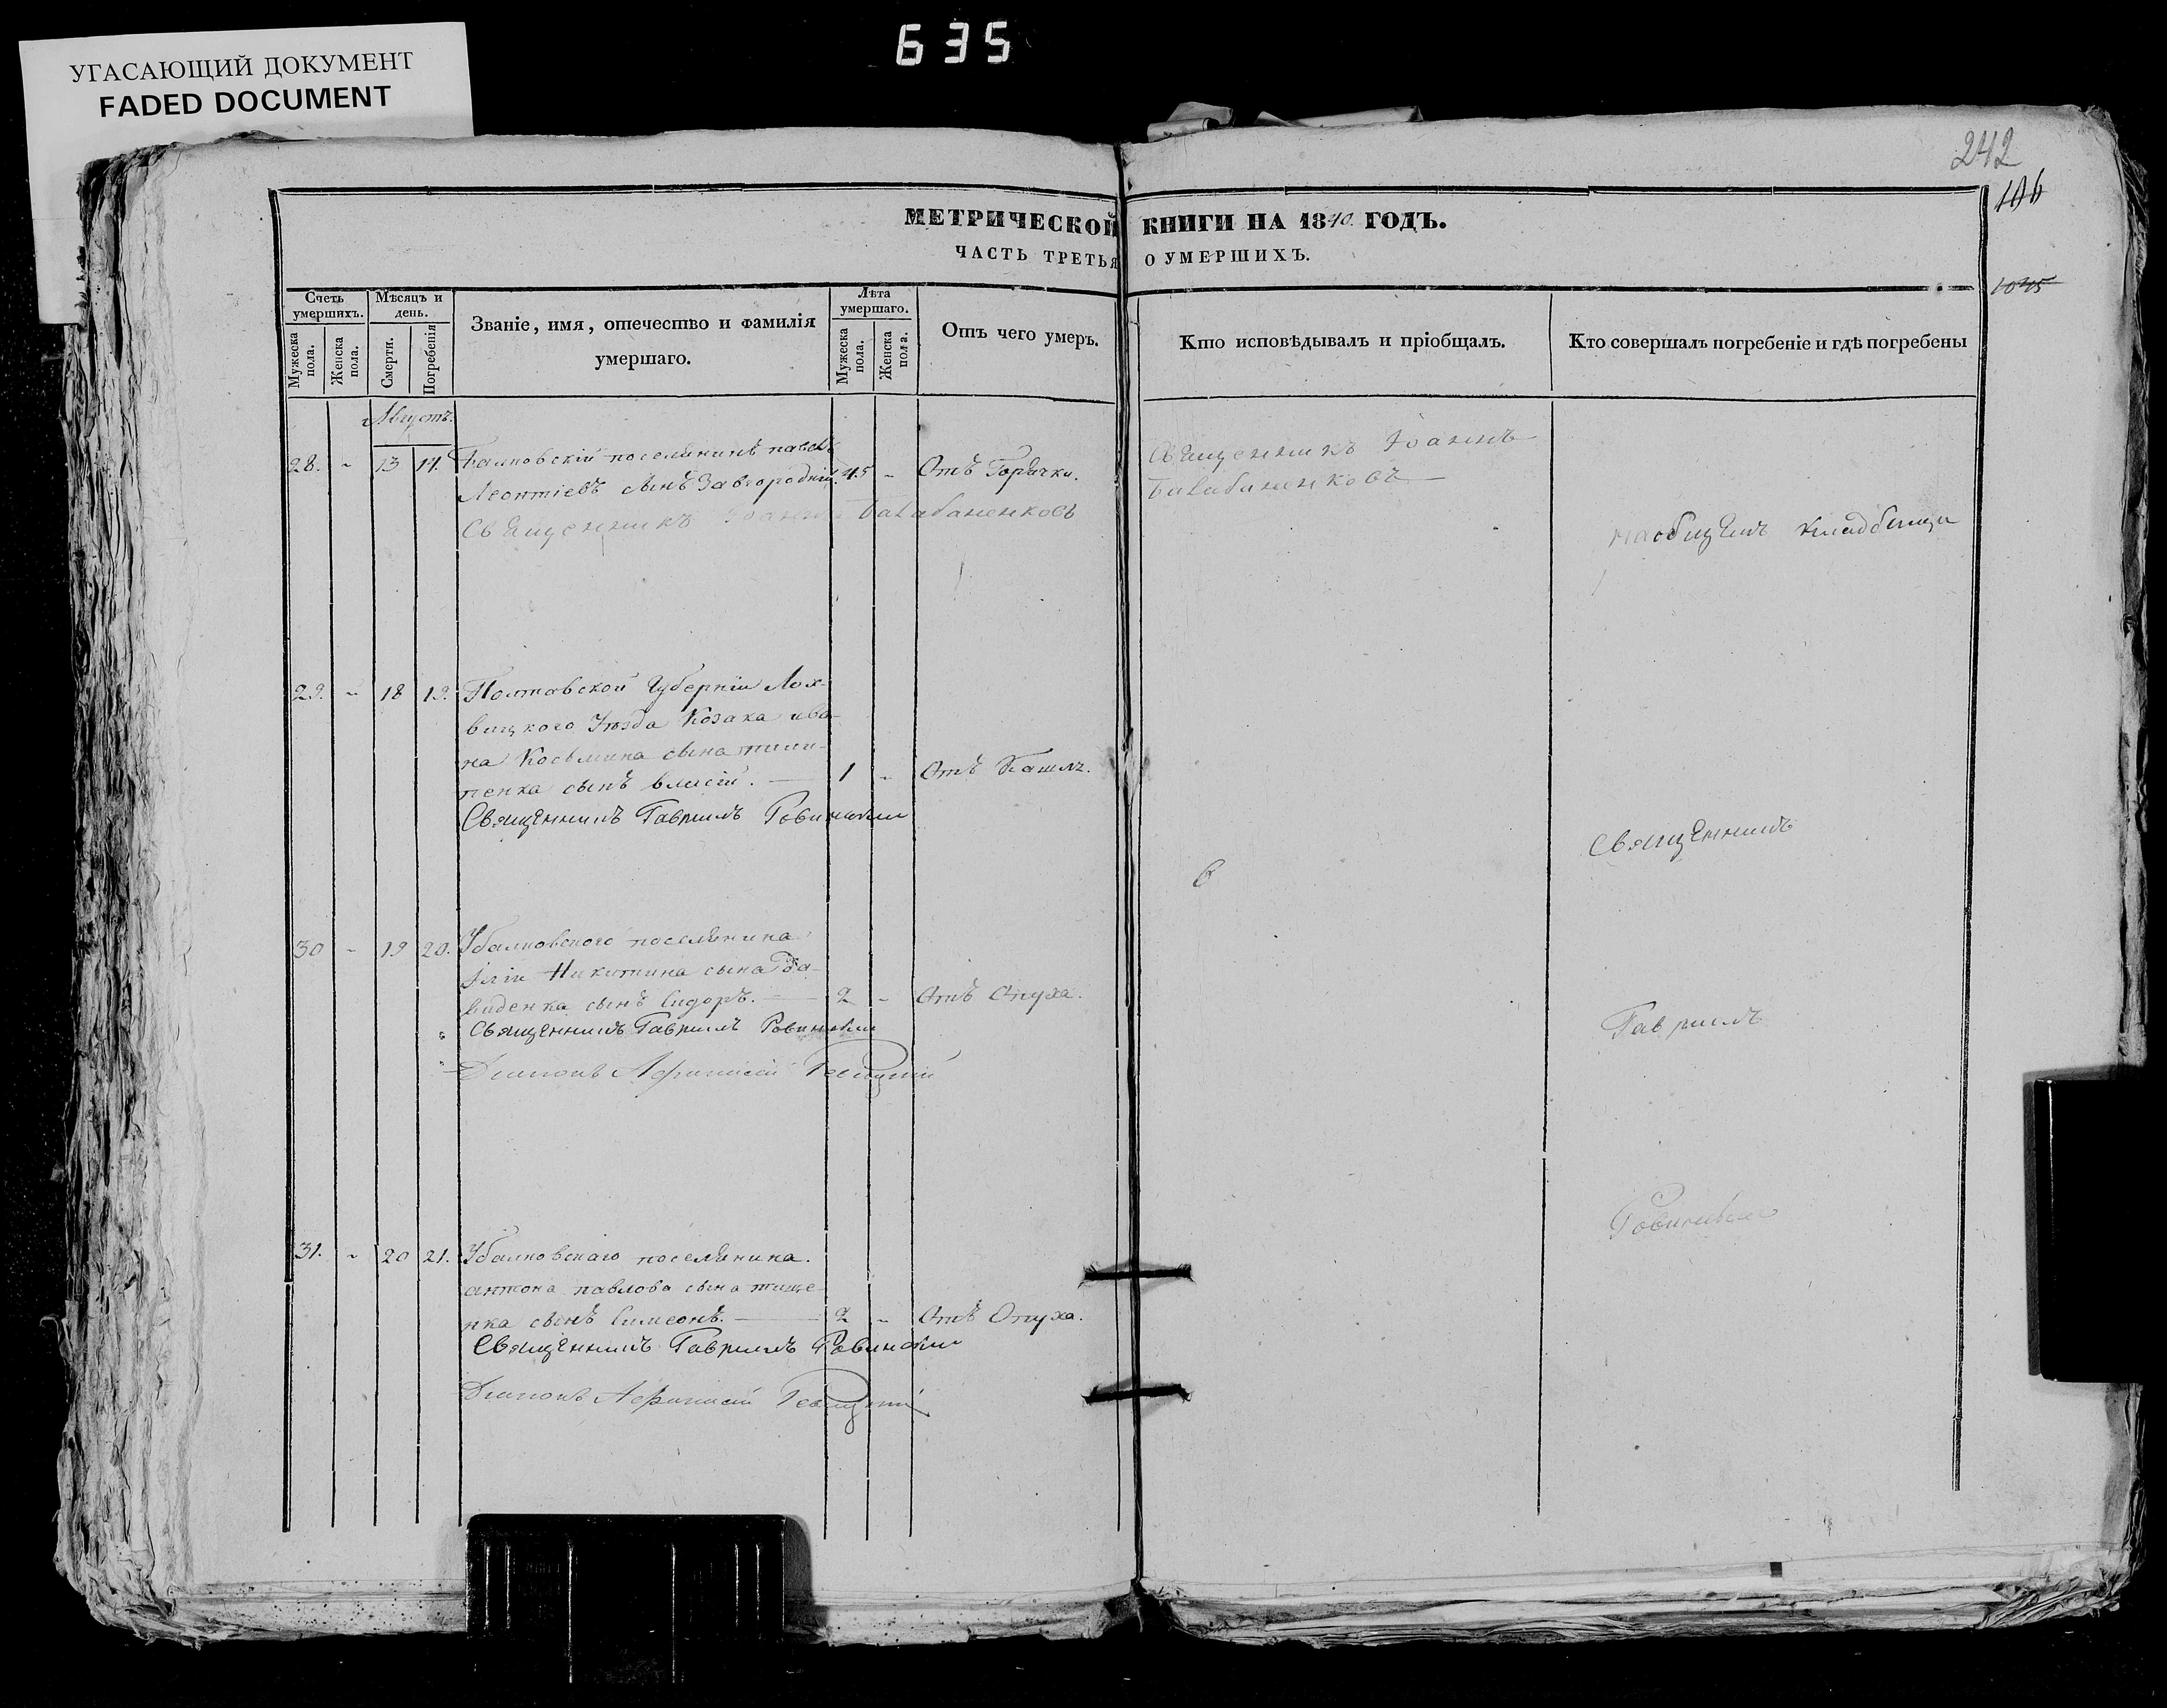 635
УГАСАЮЩИЙ ДОКУМЕНТ
FADED DOCUMENT
242
106
1045
МЕТРИЧЕСКОЙ КНИГИ НА 1840. ГОДЪ.
ЧАСТЬ ТРЕТЬЯ О УМЕРШИХЪ.
Счетъ умершихъ.
Мужеска пола.
Женска пола.
Мѣсяцъ и день.
Смерти.
Погребенія
Званіе, имя, отечество и фамилія умершаго.
Лѣта умершаго.
Мужеска пола.
Женска пола.
Отъ чего умеръ.
Кто исповѣдывалъ и пріобщалъ.
Кто совершалъ погребеніе и гдѣ погребены
Августъ.
28. - 13 14. поселянинъ павелъ
Леонтіевъ сынъ Завгородній. 45 - Отъ Горячки.
Священникъ Іоаннъ Балабаненковъ
Священникъ Іоаннъ
Балабаненковъ
на общемъ кладбищи
29. - 18 19. Полтавской Губерніи Лох-
вицкого Уѣзда Козака ива-
на Косьмина сына пили-
пенка сынъ власій. 1 - Отъ Кашлѣ.
Священникъ Гавриилъ Ровинскій
30 - 19 20. поселянина
Іліи Никитина сына Да-
виденка сынъ Сидоръ. 2 - Отъ Опуха.
Священникъ Гавриилъ Ровинскій
Діаконъ Афанасій
31. - 20 21. поселянина.
антона павлова сына тище-
нка сынъ Симеонъ. 2 - Отъ Опуха.
Священникъ Гавриилъ Ровинскій
Діаконъ Афанасій
Священникъ
Гавриилъ
Ровинскій